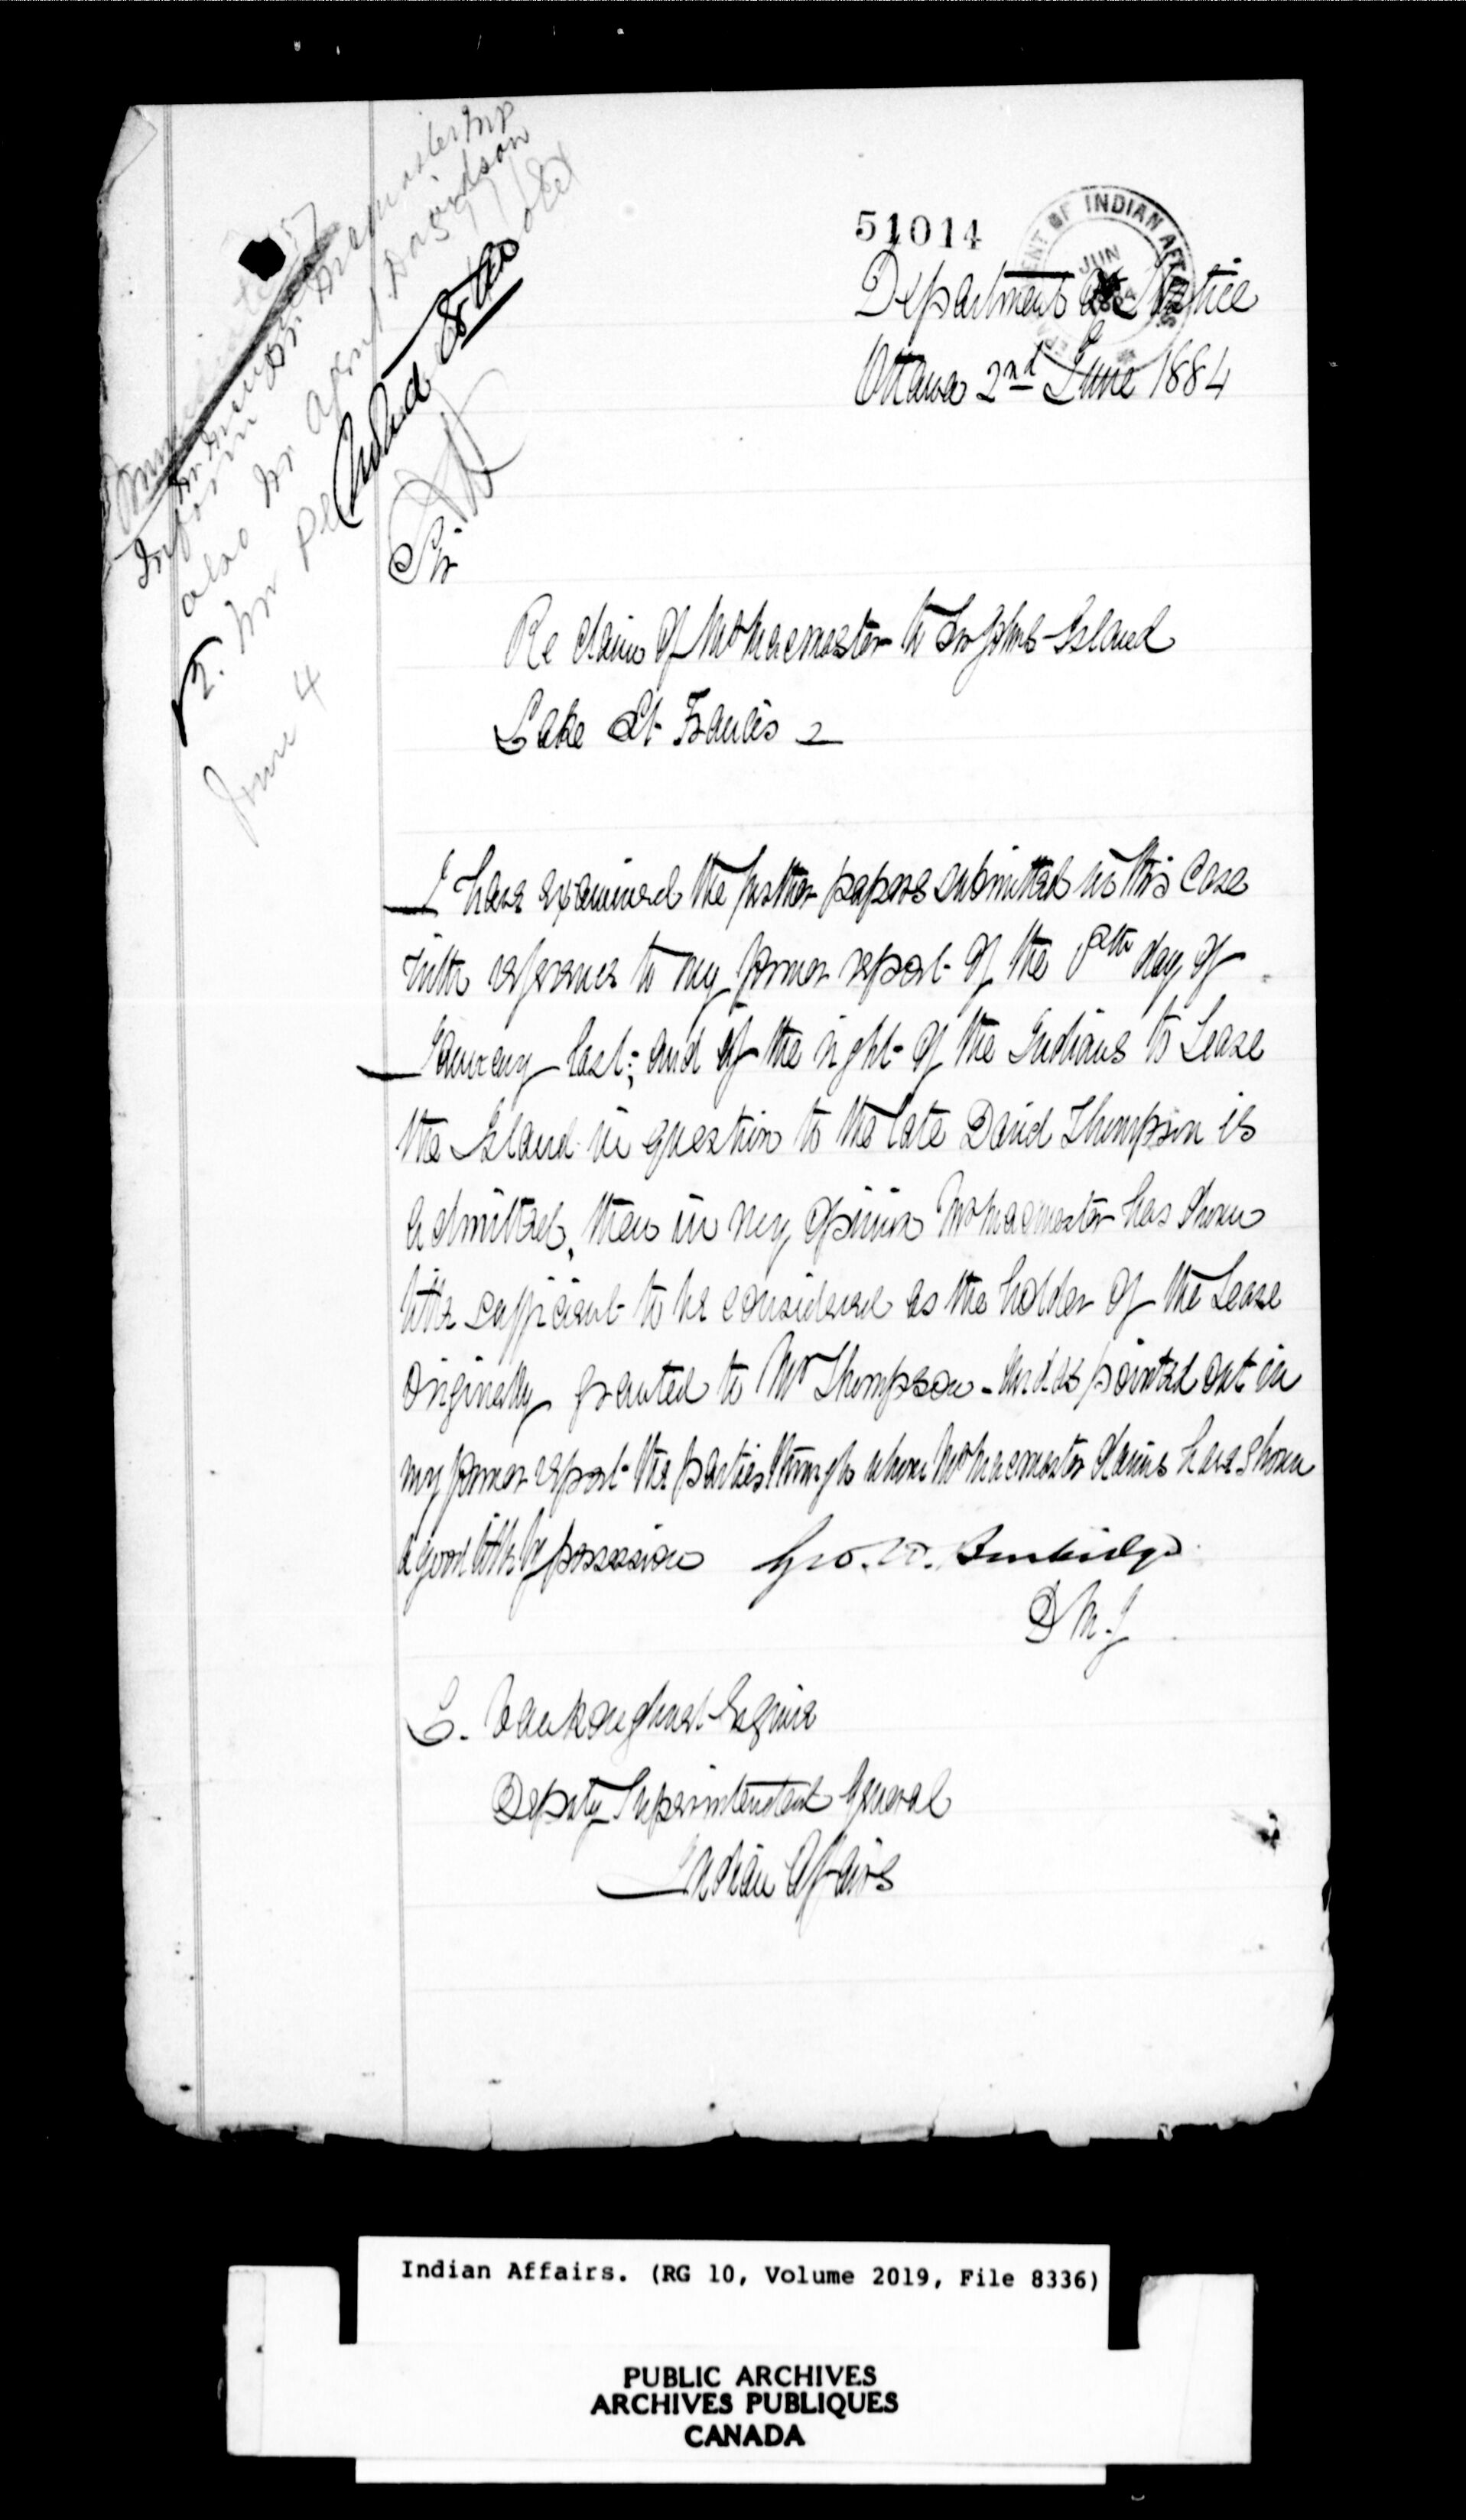 51014
DEPARTMENT OF INDIAN AFFAIRS
JUN
Department of Justice
Ottawa 2nd June 1884
Inform Mr. Macmaster MP
also Mr Agent Davidson
June 4
Sir
Re claim of Mr Macmaster to St Johns Island
Lake St Francis
I have examined the further papers submitted in this Case
with reference to my former report of the 8th day of
January last; and if the right of the Indians to Lease
the Island in question to the late David Thompson is
admitted, then in my opinion Mr Macmaster has shown
title sufficient to be considered as the holder of the Lease
Originally granted to Mr Thompson - And as pointed out in
my former report the parties through whom Mr Macmaster claims have shown
a good title by possession Geo. W. Burbidge
D M. J
L. Vankoughnet Esquire
Deputy Superintendent General
Indian Affairs
Indian Affairs. (RG 10, Volume 2019, File 8336)
PUBLIC ARCHIVES
ARCHIVES PUBLIQUES
CANADA